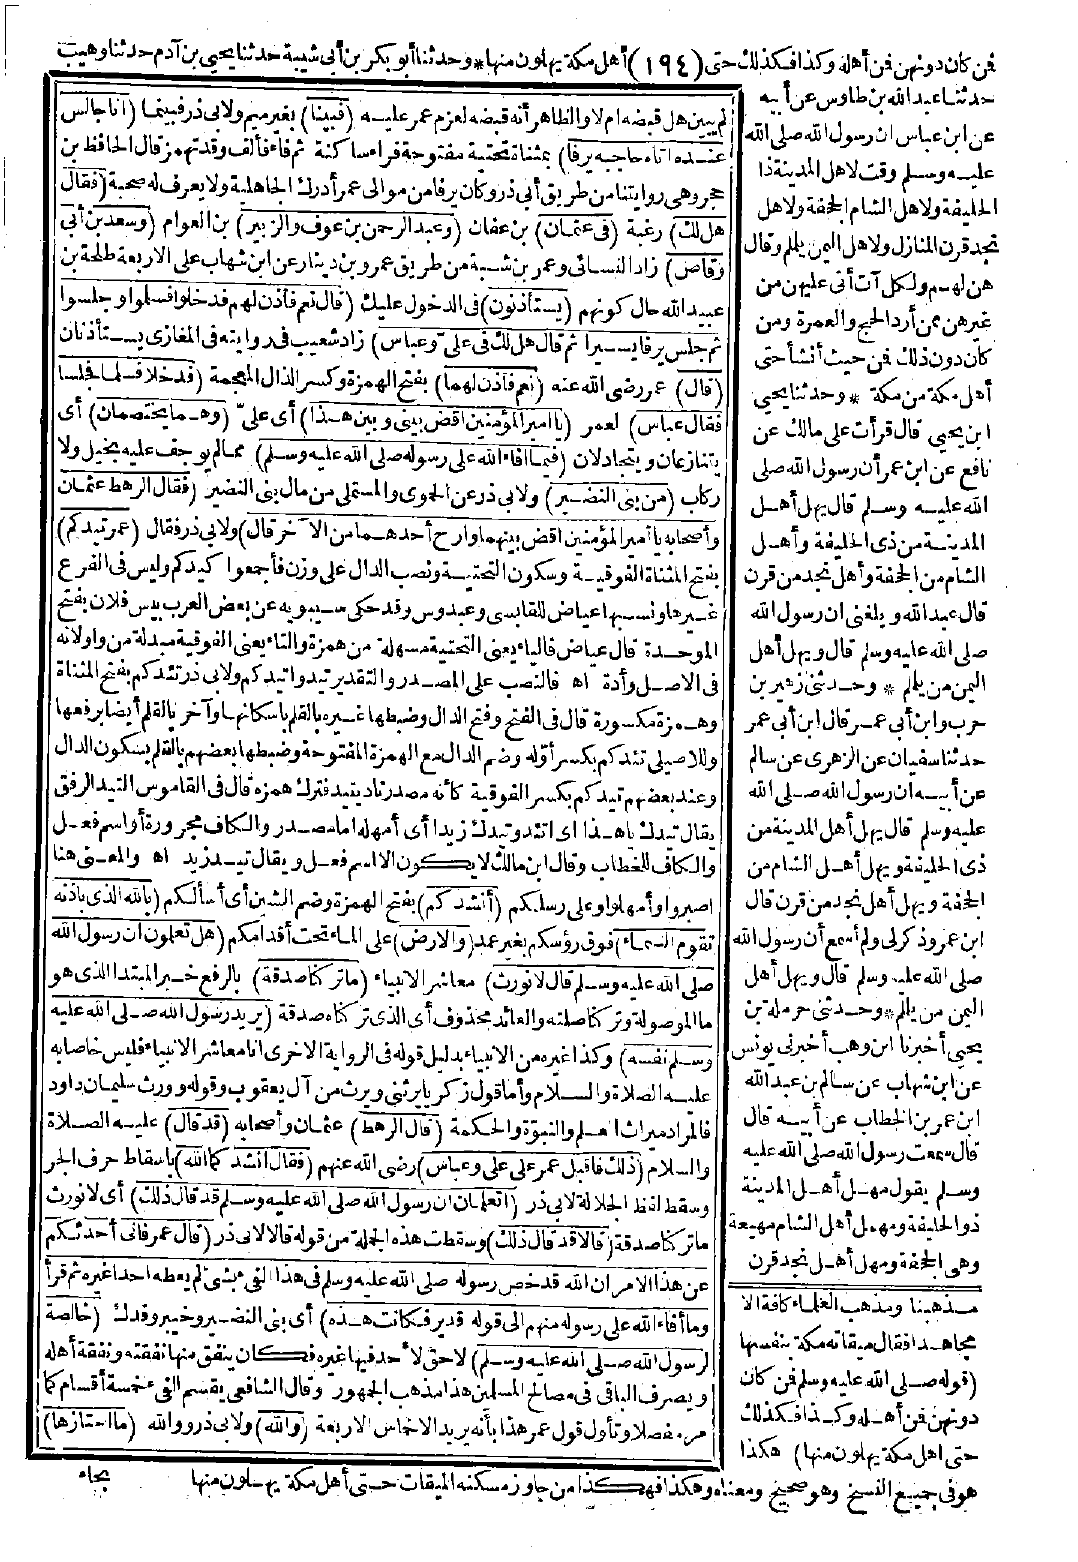 فن كان دونهن فن أهله وكذا فكذلك حتى (١٩٤) أهل مكة يهلون منها * وحدثنا أبو بكر بن أبي شيبة حدثنا يحيى بن آدم حدثنا وهيب
حدثنا عبد الله بن طاوس عن أبيه
عن ابن عباس ان رسول الله صلى الله
عليه وسلم وقت لاهل المدينة ذا
الحليفة ولاهل الشام الجحفة ولاهل
نجد قرن المنازل ولاهل اليمن يلملم وقال
هن لهم ولكل آت أتى عليهن من
غيرهن ممن أراد الحج والعمرة ومن
كان دون ذلك فن حيث أنشأ حتى
أهل مكة من مكة * وحدثنا يحيى
ابن يحيى قال قرأت على مالك عن
نافع عن ابن عمر أن رسول الله صلى
الله عليه وسلم قال يهل أهل
المدينة من ذى الحليفة وأهل
الشام من الجحفة وأهل نجد من قرن
قال عبد الله وبلغنى ان رسول الله
صلى الله عليه وسلم قال ويهل أهل
اليمن من يلملم * وحدثنى زهير بن
حرب وابن أبى عمر قال ابن أبى عمر
حدثنا سفيان عن الزهرى عن سالم
عن أبيه ان رسول الله صلى الله
عليه وسلم قال يهل أهل المدينة من
ذى الحليفة ويهل أهل الشام من
الجحفة ويهل أهل نجد من قرن قال
ابن عمر وذكر لى ولم أسمع أن رسول الله
صلى الله عليه وسلم قال ويهل أهل
اليمن من يلملم * وحدثنى حرملة بن
يحيى أخبرنا ابن وهب أخبرنى يونس
عن ابن شهاب عن سالم بن عبد الله
ابن عمر بن الخطاب عن أبيه قال
قال سمعت رسول الله صلى الله عليه
وسلم يقول مهل أهل المدينة
ذو الحليفة ومهل أهل الشام مهيعة
وهى الجحفة ومهل أهل نجد قرن
مذهبنا ومذهب العلماء كافة الا
مجاهدا فقال ميقاته مكة بنفسها
(قوله صلى الله عليه وسلم فن كان
دونهن فن أهله وكذا فكذلك
حتى اهل مكة يهلون منها) هكذا
هو فى جميع النسخ وهو صحيح ومعناه وهكذا فهكذا من جاوز مسكنه الميقات حتى أهل مكة يهلون منها
لم يبين هل قبضه ام لا والظاهر أنه قبضه لعزم عمر عليه (فبينا) بغير ميم ولابى ذر فبينما (انا جالس
عنده اتاه حاجبه يرفا) بمثناة تحتية مفتوحة فراء ساكنة ثم فاء فألف وقد تهمز قال الحافظ بن
حجر وهى روايتنا من طريق أبى ذر وكان يرفا من موالى عمر أدرك الجاهلية ولا يعرف له صحبة (فقال
هل لك) رغبة (فى عثمان) بن عفان (وعبد الرحمن بن عوف والزبير) بن العوام (وسعد بن أبى
وقاص) زاد النسائى وعمر بن شبة من طريق عمرو بن دينار عن ابن شهاب على الاربعة طلحة بن
عبيد الله حال كونهم (يستأذنون) فى الدخول عليك (قال نعم فأذن لهم فدخلوا فسلموا وجلسوا
ثم جلس يرفا يسيرا ثم قال هل لك فى على وعباس) زاد شعيب فى روايته فى المغازى يستأذنان
(قال) عمر رضى الله عنه (نعم فأذن لهما) بفتح الهمزة وكسر الذال المعجمة (فدخلا فسلما فجلسا
فقال عباس) لعمر (يا امير المؤمنين اقض بينى وبين هذا) أى علىّ (وهما يختصمان) أى
يتنازعان ويتجادلان (فيما افاء الله على رسوله صلى الله عليه وسلم) مما لم يوجف عليه بخيل ولا
ركاب (من بنى النضير) ولابى ذر عن الحموى والمستملى من مال بنى النضير (فقال الرهط عثمان
وأصحابه يا أمير المؤمنين اقض بينهما وارح أحدهما من الآخر قال) ولابى ذر فقال (عمر تيدكم)
بفتح المثناة الفوقية وسكون التحتية ونصب الدال على وزن فأجمعوا كيدكم وليس فى الفرع
غيرها ونسبها عياض للقابسى وعبدوس وقد حكى سيبويه عن بعض العرب بيس فلان بفتح
الموحدة قال عياض فالياء يعنى التحتية مسهلة من همزة والتاء يعنى الفوقية مبدلة من واو لانه
فى الاصل وأدة اه فالنصب على المصدر والتقدير تيدوا تيدكم ولابى ذر تئدكم بفتح المثناة
وهمزة مكسورة قال فى الفتح وفتح الدال وضبطها غيره بالقلم باسكانها وآخر بالقلم أيضا برفعها
وللاصيلى تئدكم بكسر أوله وضم الدال مع الهمزة المفتوحة وضبطها بعضهم بالقلم بسكون الدال
وعند بعضهم تيدكم بكسر الفوقية كأنه مصدر تاد يتيد فترك همزه قال فى القاموس التيد الرفق
يقال تيدك يا هذا اى اتئد وتيدك زيدا أى أمهله اما مصدر والكاف مجرورة أو اسم فعل
والكاف للخطاب وقال ابن مالك لا يكون الا اسم فعل ويقال تيد زيد اه والمعنى هنا
اصبروا وأمهلوا وعلى رسلكم (أنشدكم) بفتح الهمزة وضم الشين أى أسألكم (بالله الذى باذنه
تقوم السماء) فوق رؤسكم بغير عمد (والارض) على الماء تحت أقدامكم (هل تعلمون ان رسول الله
صلى الله عليه وسلم قال لا نورث) معاشر الانبياء (ما تركنا صدقة) بالرفع خبر المبتدا الذى هو
ما الموصولة وتركنا صلته والعائد محذوف أى الذى تركناه صدقة (يريد رسول الله صلى الله عليه
وسلم نفسه) وكذا غيره من الانبياء بدليل قوله فى الرواية الاخرى انا معاشر الانبياء فليس خاصا به
عليه الصلاة والسلام وأما قول زكريا يرثنى ويرث من آل يعقوب وقوله وورث سليمان داود
فالمراد ميراث العلم والنبوة والحكمة (قال الرهط) عثمان وأصحابه (قد قال) عليه الصلاة
والسلام (ذلك فاقبل عمر على على وعباس) رضى الله عنهم (فقال انشدكما الله) باسقاط حرف الجر
وسقط لفظ الجلالة لابى ذر (اتعلمان ان رسول الله صلى الله عليه وسلم قد قال ذلك) أى لا نورث
ما تركنا صدقة (قالا قد قال ذلك) وسقطت هذه الجملة من قوله قالا لابى ذر (قال عمر فانى أحدثكم
عن هذا الامر ان الله قد خص رسوله صلى الله عليه وسلم فى هذا الفىء بشىء لم يعطه احدا غيره ثم قرأ
وما أفاء الله على رسوله منهم الى قوله قدير فكانت هذه) أى بنى النضير وخيبر وفدك (خالصة
لرسول الله صلى الله عليه وسلم) لا حق لأحد فيها غيره فكان ينفق منها نفقته ونفقة أهله
ويصرف الباقى فى مصالح المسلمين هذا مذهب الجمهور وقال الشافعى يقسم الفىء خمسة أقسام كما
مر مفصلا وتأول قول عمر هذا بأنه يريد الاخماس الاربعة (والله) ولابى ذر ووالله (ما احتازها)
بجاء